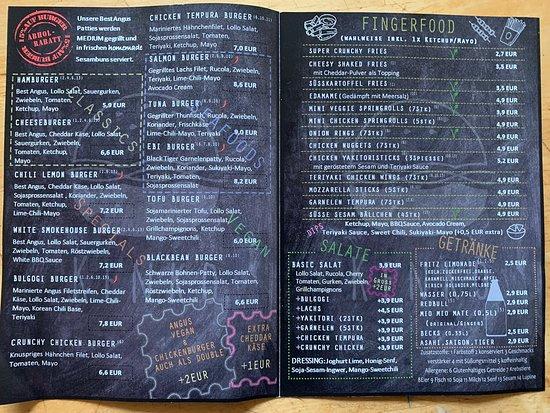 15% AUF BURGER
ABHOL-
RABATT
Unsere Best Angus
Patties werden
MEDIUM gegrillt und
in frischen homemade
Sesambuns serviert.
CLASSICS
HAMBURGER
Best Angus, Lollo Salat,
Sauergurken, Zwiebeln,
Tomaten,
Ketchup, Mayo
5,9 EUR
CHEESEBURGER
Best Angus, Cheddar Käse, Lollo Salat,
Sauergurken, Zwiebeln,
Tomaten, Ketchup,
Mayo
6,6 EUR
SPECIALS
CHILI LEMON BURGER
Best Angus, Cheddar Käse, Lollo Salat,
Sojasprossensalat, Koriander, Zwiebeln,
Tomaten, Ketchup,
Lime-Chili-Mayo
7,2 EUR
WHITE SMOKEHOUSE BURGER
Best Angus, Lollo Salat, Sauergurken,
Zwiebeln, Tomaten, Röstzwiebeln,
White BBQ Sauce
7,2 EUR
BULGOGI BURGER
Marinierte Angus Filetstreifen, Cheddar
Käse, Lollo Salat, Zwiebeln, Lime-Chili-
Mayo, Korean Chili Base,
Teriyaki
7,8 EUR
CRUNCHY CHICKEN BURGER
Knuspriges Hähnchen Filet, Lollo Salat,
Tomaten, Ketchup, Mayo
6,6 EUR
CHICKEN TEMPURA BURGER
Mariniertes Hähnchenfilet, Lollo Salat,
Sojasprossensalat, Tomaten, Zwiebeln,
Teriyaki, Ketchup, Mayo
7,0 EUR
SEAFOODS
SALMON BURGER
Gegrilltes Lachs Filet, Rucola, Zwiebeln,
Teriyaki, Lime-Chili-Mayo,
Avocado Cream
8,6 EUR
TUNA BURGER
Gegrillter Thunfisch, Rucola, Zwiebeln,
Koriander, Frischkäse
Lime-Chili-Mayo, Teriyaki
9,0 EUR
EBI BURGER
Black Tiger Garnelenpatty, Rucola,
Zwiebeln, Sukiyaki-Mayo, Teriyaki,
Sojasprossensalat
8,2 EUR
VEGAN
TOFU BURGER
Sojamarinierter Tofu, Lollo Salat,
Zwiebeln, Sojasprossensalat,
Grillchampignons, Ketchup,
Mango-Sweetchili
6,6 EUR
BLACKBEAN BURGER
Schwarze Bohnen-Patty, Lollo Salat,
Zwiebeln, Röstzwiebeln, Ketchup,
Mango-Sweetchili
6,6 EUR
ANGUS
VEGAN
&
CHICKENBURGER
AUCH ALS DOUBLE
+2EUR
EXTRA
CHEDDAR
KÄSE
+1EUR
FINGERFOOD
(WAHLWEISE INKL. 1x KETCHUP/MAYO)
SUPER CRUNCHY FRIES 2,7 EUR
CHEESY SHAKED FRIES
mit Cheddar-Pulver als Topping
SÜSSKARTOFFEL FRIES
EDAMAME (Gedämpft mit Meersalz)
MINI VEGGIE SPRINGROLLS (7STK)
MINI CHICKEN SPRINGROLLS (5STK)
ONION RINGS (7STK)
CHICKEN NUGGETS (7STK)
CHICKEN YAKITORISTICKS (3SPIESSE)
mit geröstetem Sesam und Teriyaki Sauce
TERIYAKI CHICKEN WINGS (7STK)
MOZZARELLA STICKS (5STK)
GARNELEN TEMPURA (5STK)
SÜSSE SESAM BÄLLCHEN (4STK)
DIPS
Ketchup, Mayo, BBQ Sauce, Avocado Cream,
Teriyaki Sauce, Sweet Chili, Sukiyaki-Mayo (+0,5 EUR extra)
SALATE
BASIC SALAT 3,9 EUR
Lollo Salat, Rucola, Cherry
Tomaten, Gurken, Zwiebeln,
Grillchampignons
IN
GROSS
+2EUR
+BULGOGI +3,9 EUR
+LACHS +4,9 EUR
+YAKITORI (2STK) +3,9 EUR
+GARNELEN (5STK) +4,9 EUR
+CHICKEN TEMPURA +3,9 EUR
+CRUNCHY CHICKEN +3,9 EUR
DRESSING: Joghurt Lime, Honig-Senf,
Soja-Sesam-Ingwer, Mango-Sweetchili
GETRÄNKE
FRITZ LIMONADE 2,5 EUR
WASSER (0,75L)
MIO MIO MATE (0,5L)
(ORIGINAL/GINGER)
BECKS (0,33L)
ASAHI, SAIGON, TIGER 2,9 EUR
Zusatzstoffe: 1 Farbstoff 2 konserviert 3 Geschmacks
verstärker 4 mit Süßungsmitteln 5 koffeinhaltig
Allergene: 6 Glutenhaltiges Getreide 7 Krebstiere
8 Eier 9 Fisch 10 Soja 11 Milch 12 Senf 13 Sesam 14 Lupine